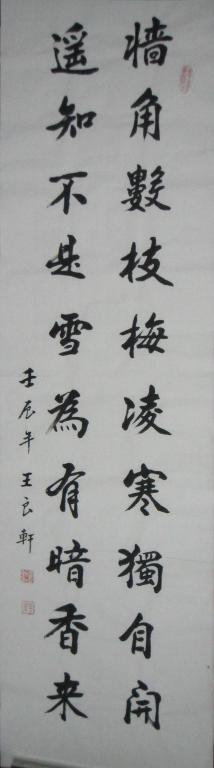 墙角數枝梅凌寒獨自開
遥知不是雪為有暗香来
壬辰年 王良軒